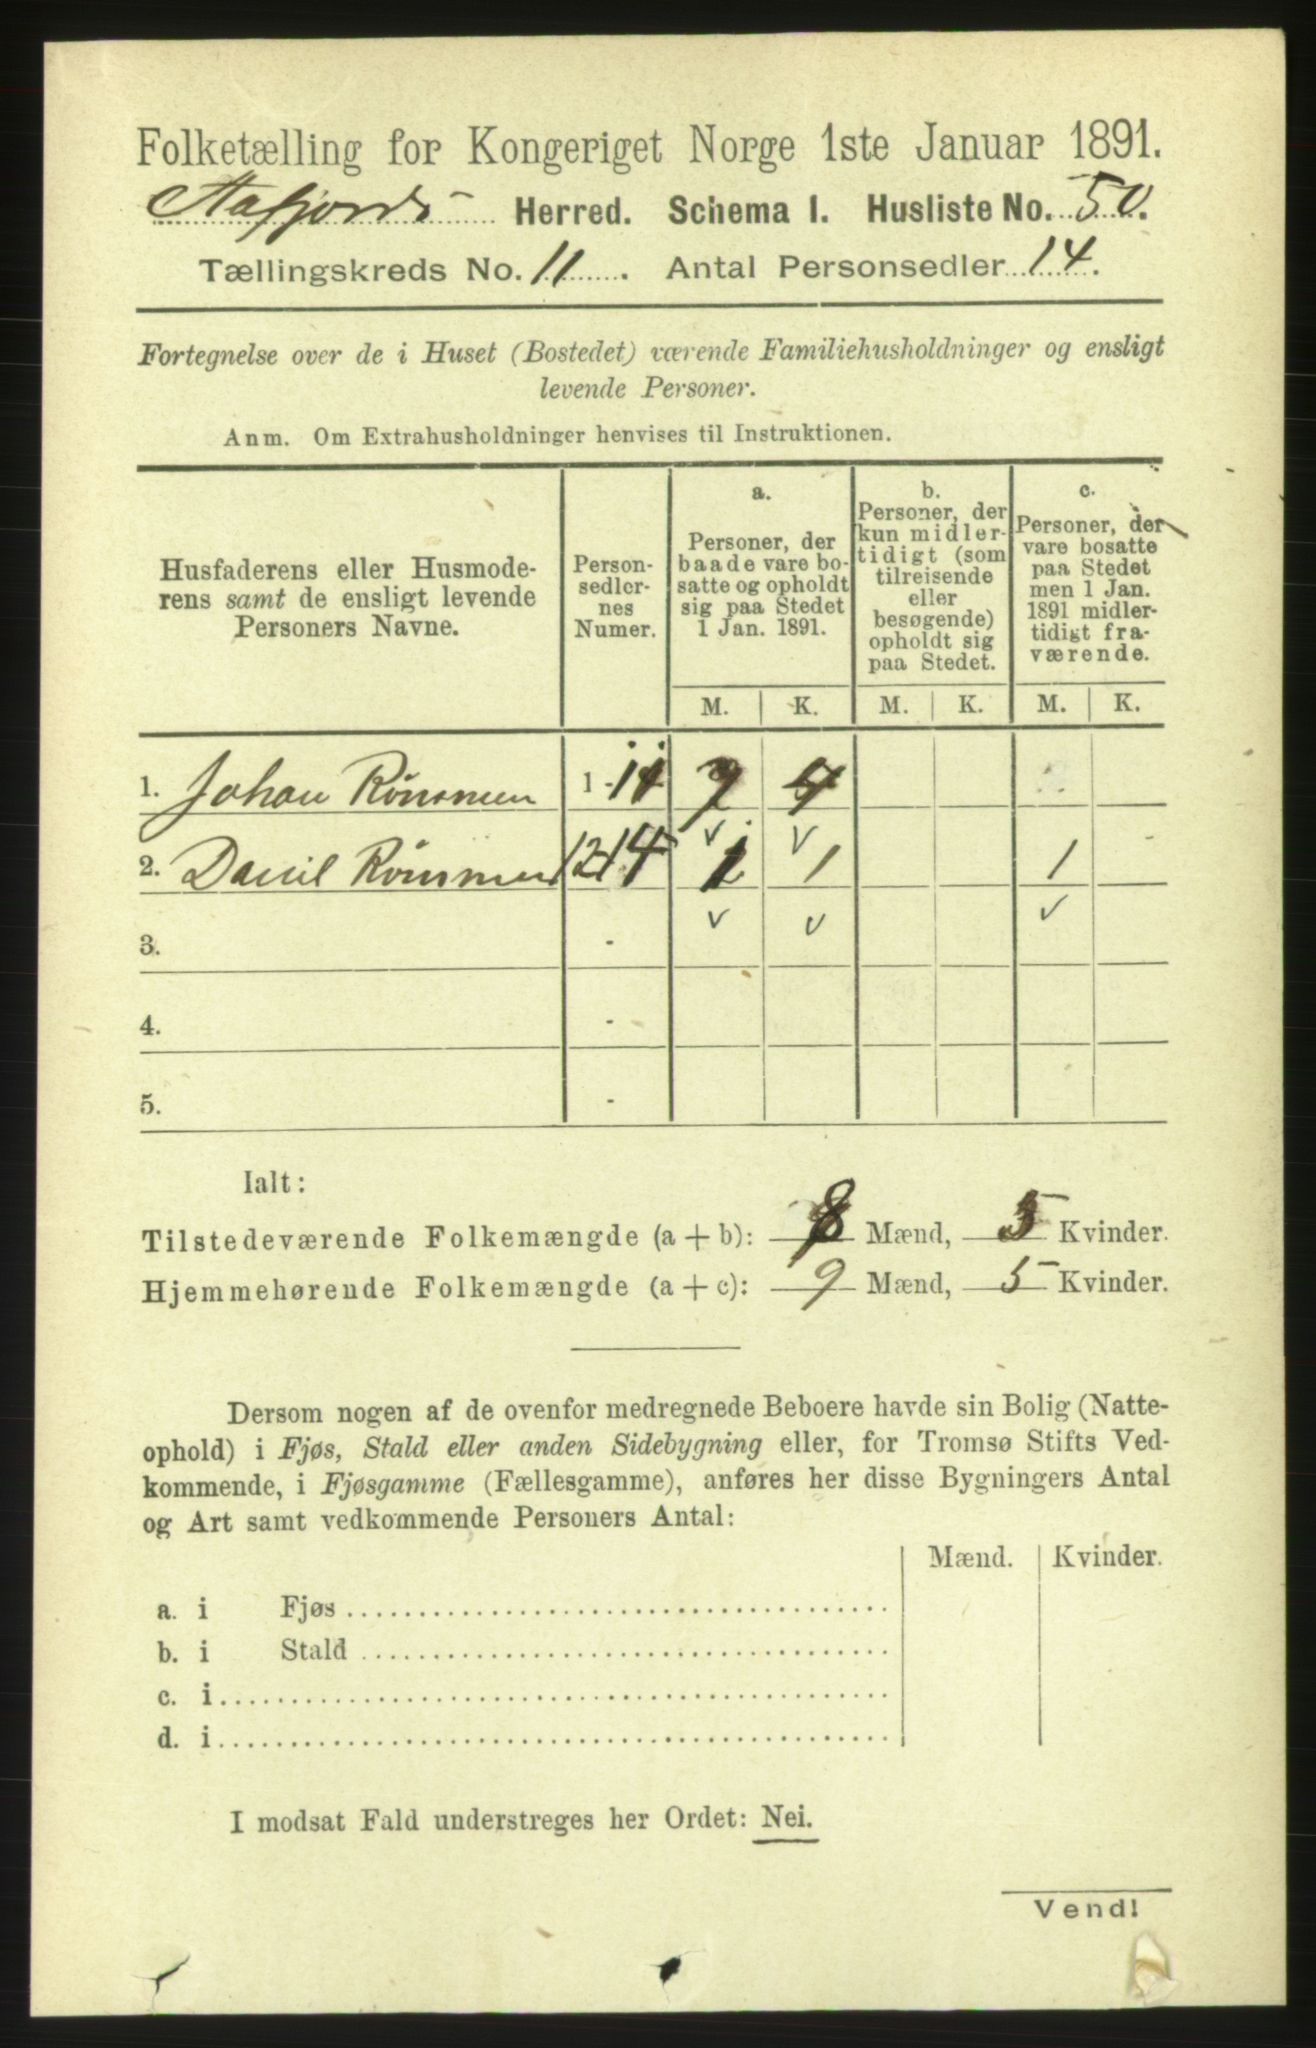 Folketælling for Kongeriget Norge 1ste Januar 1891.
Aafjords Herred. Schema I. Husliste No. 50.
Tællingskreds No. 11. Antal Personsedler 14.
Fortegnelse over de i Huset (Bostedet) værende Familiehusholdninger og ensligt
levende Personer.
Anm. Om Extrahusholdninger henvises til Instruktionen.
Husfaderens eller Husmode-
rens samt de ensligt levende
Personers Navne.
Person-
sedler-
nes
Numer.
a.
Personer, der
baade vare bo-
satte og opholdt
sig paa Stedet
1 Jan. 1891.
b.
Personer, der
kun midler-
tidigt (som
tilreisende
eller
besøgende)
opholdt sig
paa Stedet.
c.
Personer, der
vare bosatte
paa Stedet
men 1 Jan.
1891 midler-
tidigt fra-
værende.
M. K. M. K. M. K.
1. Johan Rönsmen 1 - 11 7 4
2. Daniel Rönsmen 12-14 1 1 1
3. -
4. -
5. -
Ialt:
Tilstedeværende Folkemængde (a + b): 8 Mænd, 5 Kvinder.
Hjemmehørende Folkemængde (a + c): 9 Mænd, 5 Kvinder.
Dersom nogen af de ovenfor medregnede Beboere havde sin Bolig (Natte-
ophold) i Fjøs, Stald eller anden Sidebygning eller, for Tromsø Stifts Ved-
kommende, i Fjøsgamme (Fællesgamme), anføres her disse Bygningers Antal
og Art samt vedkommende Personers Antal:
Mænd. Kvinder.
a. i Fjøs
b. i Stald
c. i
d. i
I modsat Fald understreges her Ordet: Nei.
Vend!